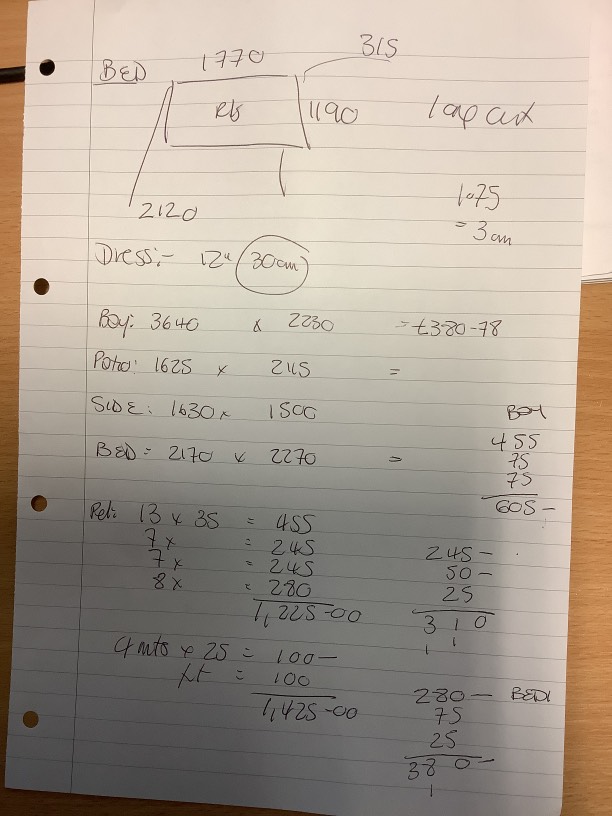 BED
1770
315
1190
2120
1.75
= 3cm
Dress:- 12" 30cm
Bay: 3640 x 2230 = £380-78
1625 x 245 =
SIDE: 1630 x 1500
BED = 2170 x 2270 =
455
75
75
605-
13 x 35 = 455
7x = 245
7x = 245
8x = 280
1,225-00
245-
50-
25
310
1 1
4 mts x 25 = 100-
= 100
1,425-00
280-
75
25
380-
1